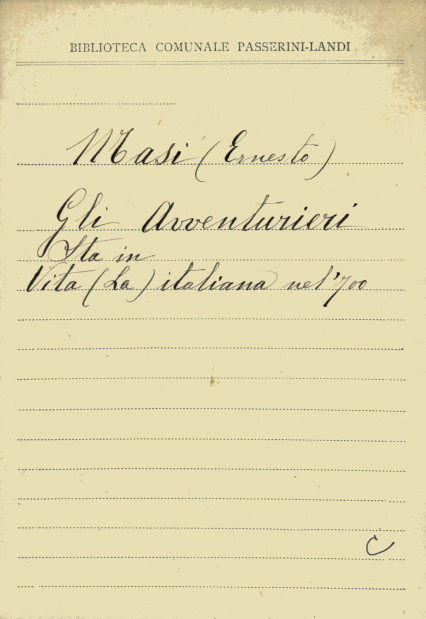 BIBLIOTECA COMUNALE PASSERINI-LANDI
Masi (Ernesto)
Gli Avventurieri
Sta in
Vita (La) italiana nel '700
C